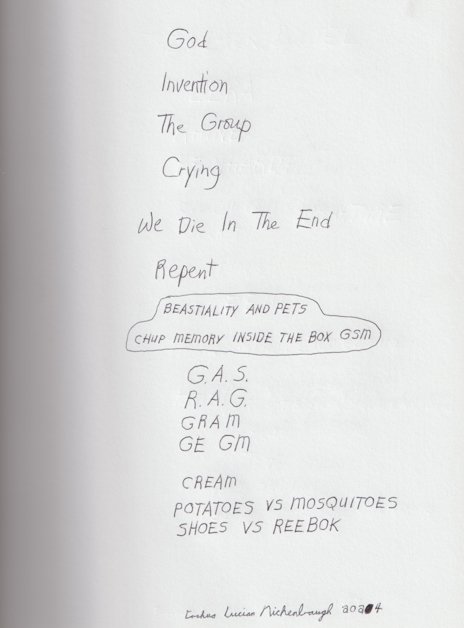 God
Invention
The Group
Crying
We Die In The End
Repent
BEASTIALITY AND PETS
CHUP MEMORY INSIDE THE BOX GSM
G.A.S.
R.A.G.
GRAM
GE GM
CREAM
POTATOES VS MOSQUITOES
SHOES VS REEBOK
Lucian Nickenbaugh